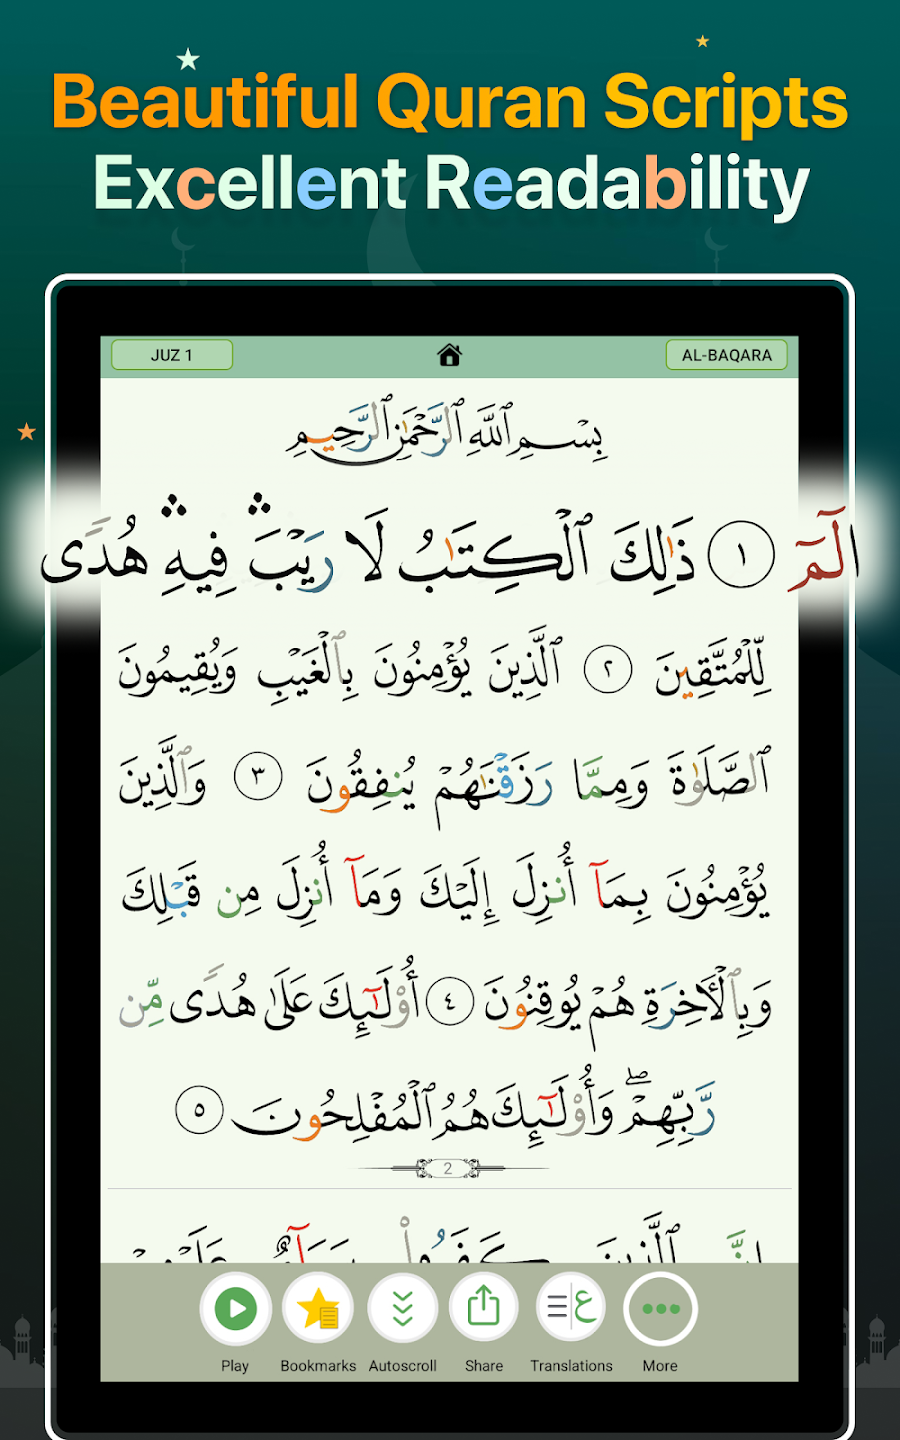 Beautiful Quran Scripts
Excellent Readability
JUZ 1
AL-BAQARA
بِسْمِ ٱللَّهِ ٱلرَّحْمَٰنِ ٱلرَّحِيمِ
الٓمٓ ١ ذَٰلِكَ ٱلْكِتَٰبُ لَا رَيْبَ ۛ فِيهِ ۛ هُدًى
لِّلْمُتَّقِينَ ٢ ٱلَّذِينَ يُؤْمِنُونَ بِٱلْغَيْبِ وَيُقِيمُونَ
ٱلصَّلَوٰةَ وَمِمَّا رَزَقْنَٰهُمْ يُنفِقُونَ ٣ وَٱلَّذِينَ
يُؤْمِنُونَ بِمَآ أُنزِلَ إِلَيْكَ وَمَآ أُنزِلَ مِن قَبْلِكَ
وَبِٱلْأَخِرَةِ هُمْ يُوقِنُونَ ٤ أُوْلَٰٓئِكَ عَلَىٰ هُدًى مِّن
رَّبِّهِمْ ۖ وَأُوْلَٰٓئِكَ هُمُ ٱلْمُفْلِحُونَ ٥
2
إِنَّ ٱلَّذِينَ كَفَرُوا۟ سَوَآءٌ عَلَيْهِمْ
Play
Bookmarks
Autoscroll
Share
Translations
More